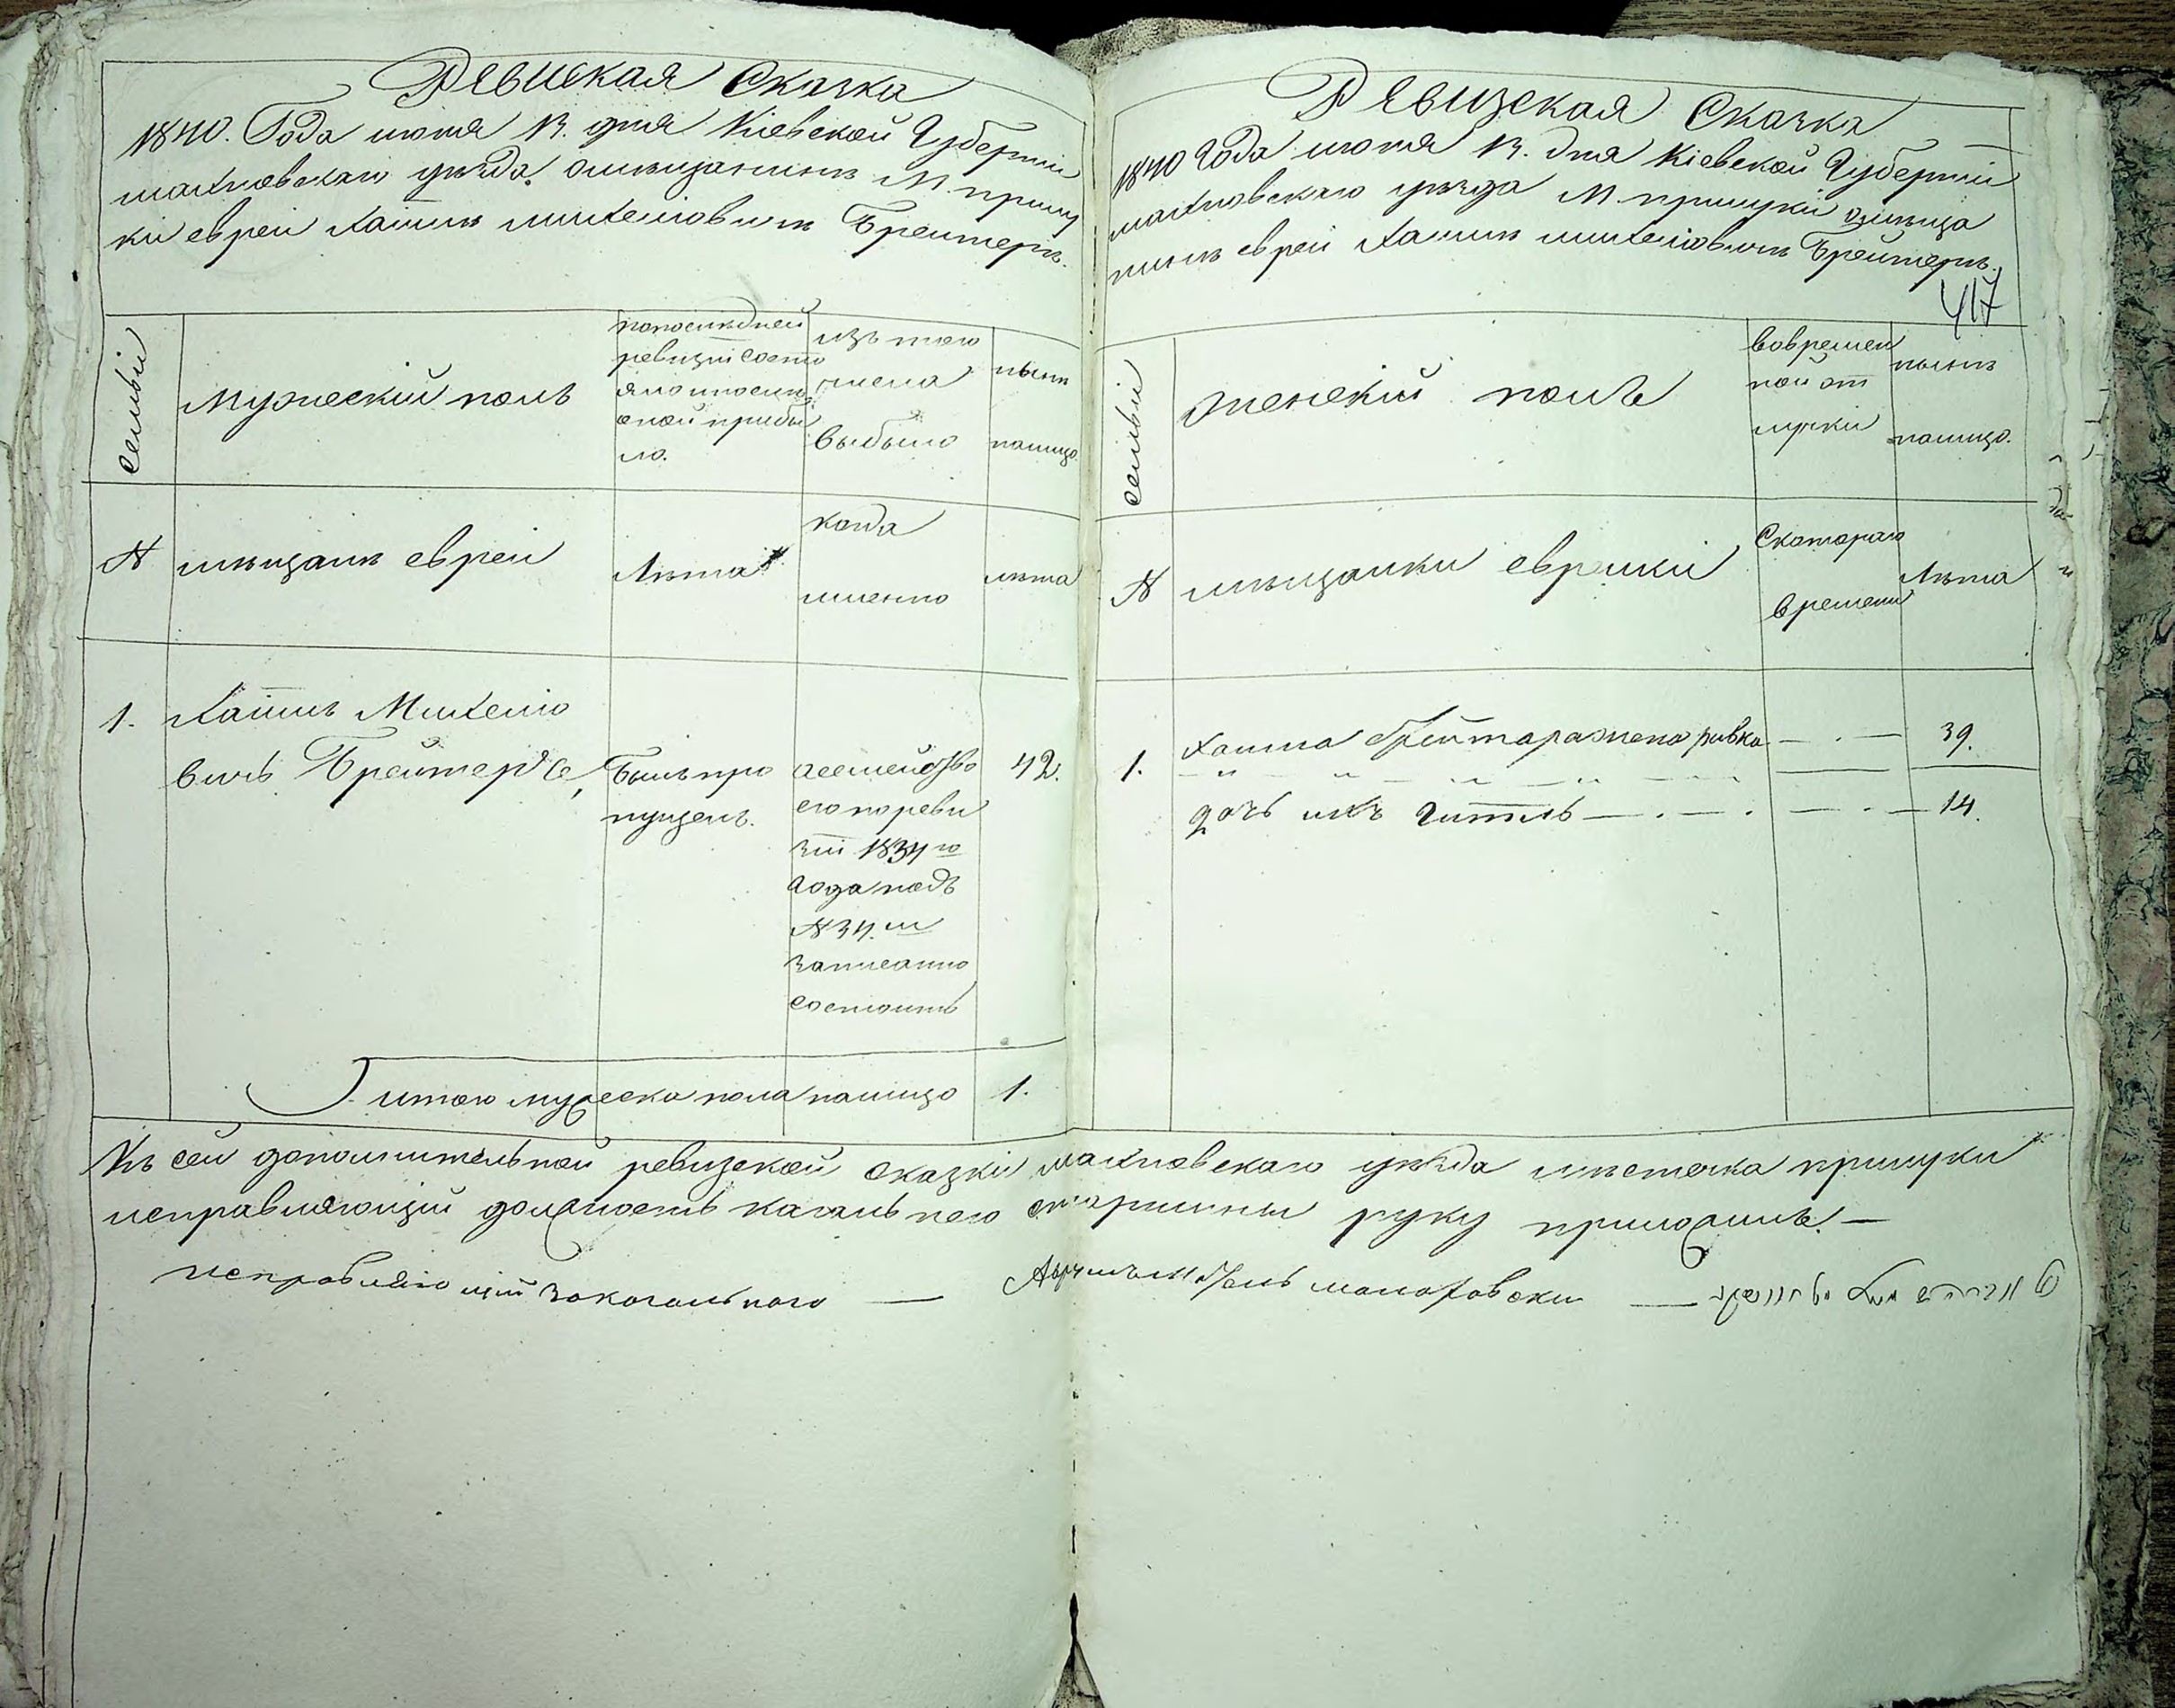 Ревиская Сказка
1840. Года июня 13. дня Кіевской Губерніи
махновскаго уѣзда о мѣщанинѣ М. прилу
ки евреи Хаимъ Михелiовичъ Брейтеръ.
семьи
Мужескій полъ
попослѣдней
ревизіи состо
яло ипослѣ
оной прибы
ло.
изъ того
числа
выбыло
нынѣ
налицо
№
мѣщанъ евреи
Лѣта
когда
именно
лѣта
1.
Хаимъ Михелiо
вичъ Брейтеръ
Былъ про
пущенъ.
асемейство
его пореви
зiи 1834го
года подъ
№ 34.м
записанно
состоитъ
42.
итого мужеска пола налицо
1.
Ревизская Сказка
1840 Года июня 13. дня Кіевской Губерніи
махновскаго уѣзда М. прилуки омѣща
нинѣ еврей Хаимъ Михелiовичъ Брейтеръ.
417
семьи
женскій полъ
вовремен
ной от
лучки
нынѣ
налицо.
№
мѣщанки еврейки
Скотораго
времени
Лѣта
1.
Хаима Брейтара жена ривка — . —
39.
дочь ихъ Гитель — . — . — . —
14.
Къ сей дополнительной ревизской сказки махновскаго уѣзда мѣстечка прилуки
исправляющій должность кагальнаго старшины руку приложилъ. —
исправляющiй закагальнаго —